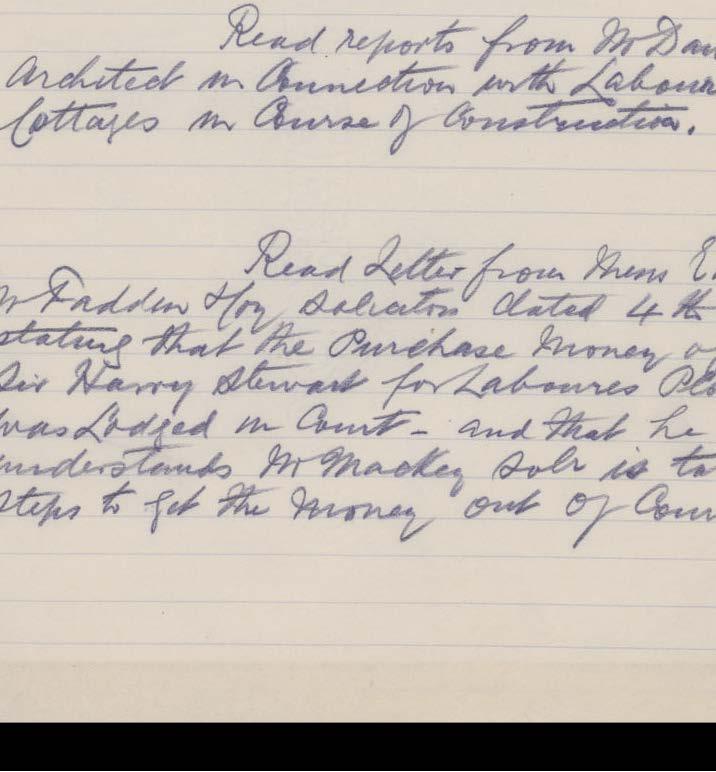 Read reports from Mr Dav
Architect in Connection with Labour
Cottages in Course of Construction.
Read Letter from Mess
McFadden & Coy Solicitors dated 4th
stating that the Purchase Money of
Sir Harry Stewart for Laboures Plo
was Lodged in Court - and that he
understands Mr Mackey Solr is ta
steps to get the Money out of Cour